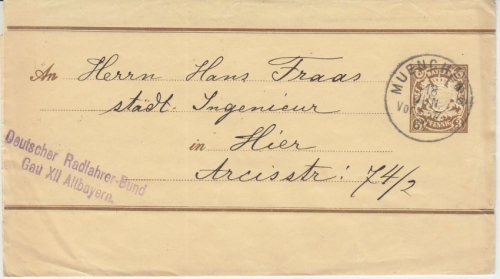 An Herrn Hans Fraas
städt. Ingenieur
in Hier
Arcisstr: 74/2
Deutscher Radfahrer-Bund
Gau XII Altbayern.
MUENCHEN
PFENNIG